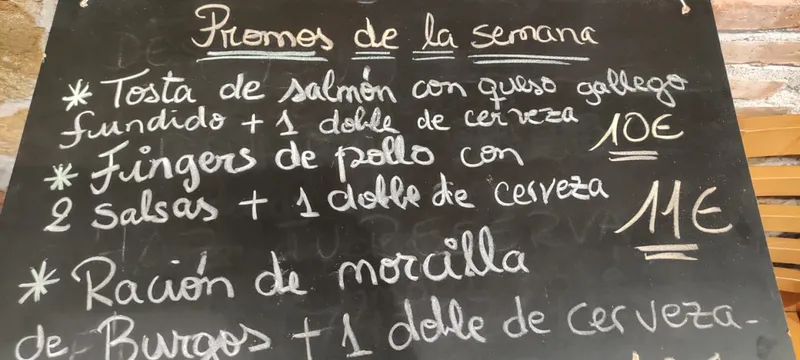 Promos de la semana
* Tosta de salmón con queso gallego
fundido + 1 doble de cerveza 10€
* Fingers de pollo con
2 salsas + 1 doble de cerveza 11€
* Ración de morcilla
de Burgos + 1 doble de cerveza-